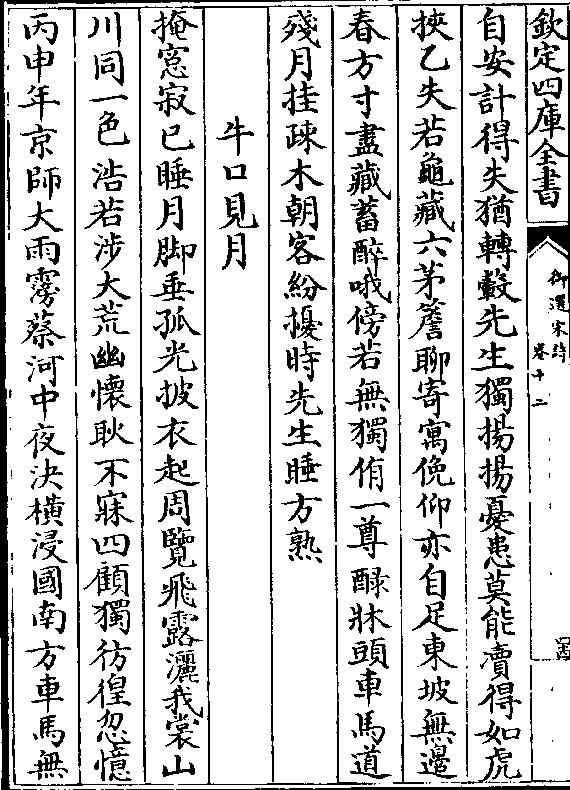 欽定四庫全書
御選宋詩
卷十二
自安計得失猶轉轂先生獨揚揚憂患莫能瀆得如虎
挾乙失若龜藏六茅簷聊寄寓俛仰亦自足東坡無邊
春方寸盡藏蓄醉哦傍若無獨侑一尊醁牀頭車馬道
殘月挂疎木朝客紛擾時先生睡方熟
牛口見月
掩窻寂已睡月脚垂孤光披衣起周覽飛露灑我裳山
川同一色浩若涉大荒幽懷耿不寐四顧獨彷徨忽憶
丙申年京師大雨霶蔡河中夜決橫浸國南方車馬無